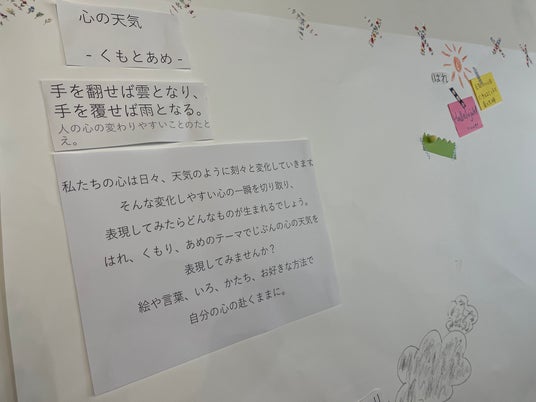 心の天気
- くもとあめ -
手を翻せば雲となり、
手を覆せば雨となる。
人の心の変わりやすいことのたと
え。
私たちの心は日々、天気のように刻々と変化していきます
そんな変化しやすい心の一瞬を切り取り、
表現してみたらどんなものが生まれるでしょう。
はれ、くもり、あめのテーマでじぶんの心の天気を
表現してみませんか？
絵や言葉、いろ、かたち、お好きな方法で
自分の心の赴くままに。
はれ